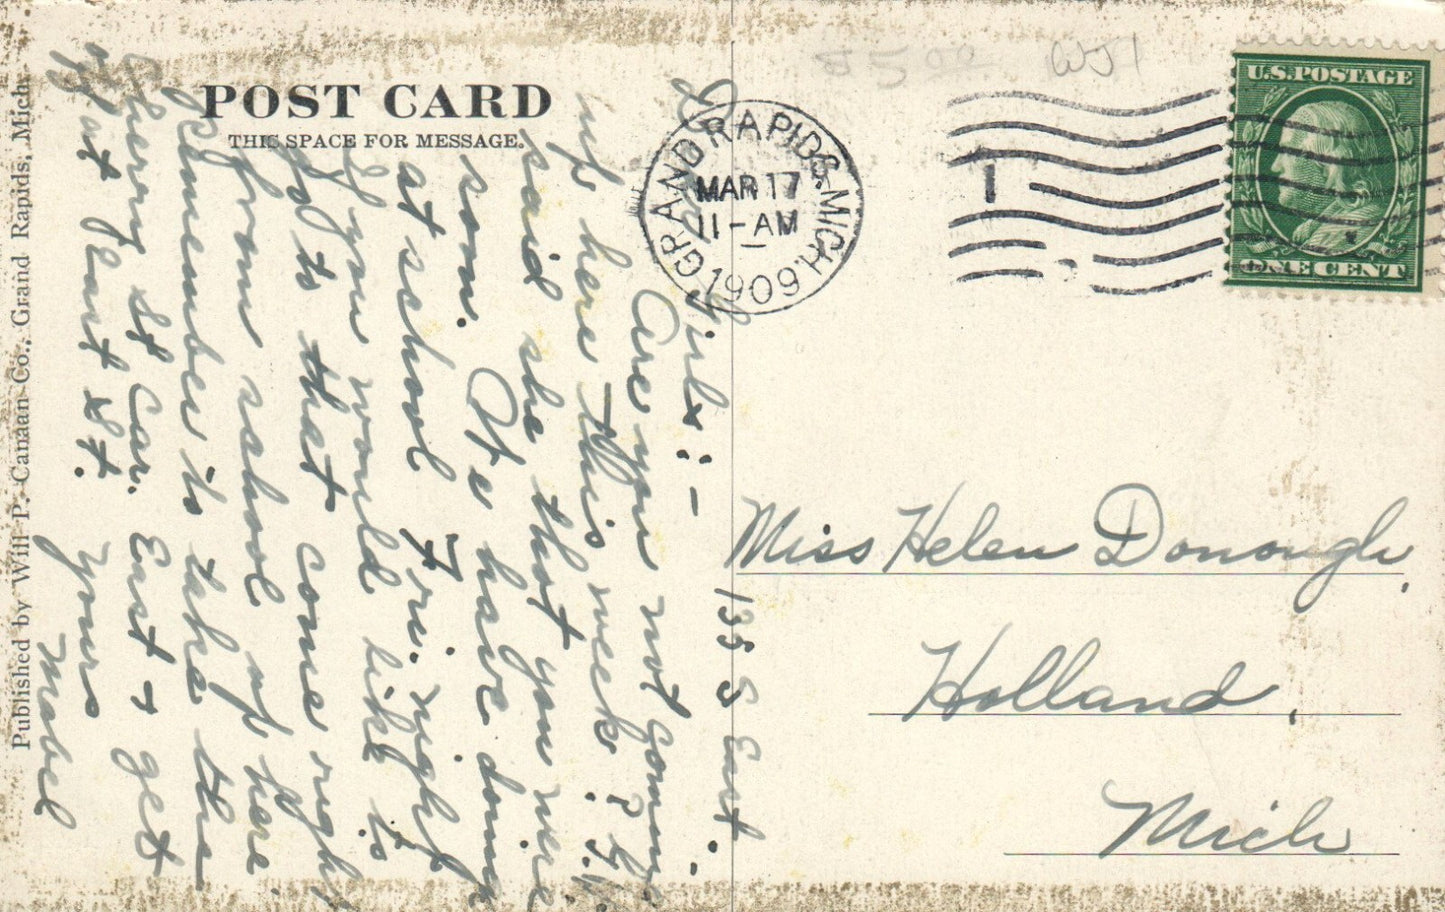 POST CARD
THIS SPACE FOR MESSAGE.
Published by Will P. Canaan Co., Grand Rapids, Mich.
Girls:-
Are you not coming
up here this week?
said she that you were
soon. We have doing
at school Fri. night
If you would like to
go to that come right
from school up here.
Remember to take the
Cherry St Car. East & get
off at Plant St.
Yours
Mabel
GRAND RAPIDS, MICH.
MAR 17
11-AM
1909
1
U.S. POSTAGE
ONE CENT
Miss Helen Donough,
135 S East.
Holland,
Mich